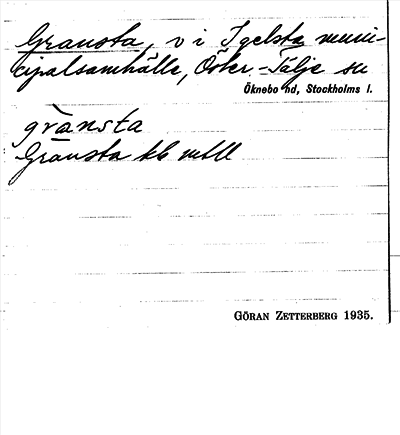 Gransta, v i Igelsta muni-
cipalsamhälle, Öster-Tälje sn
Öknebo hd, Stockholms l.
gränsta
Gränsta kb mtll
GÖRAN ZETTERBERG 1935.